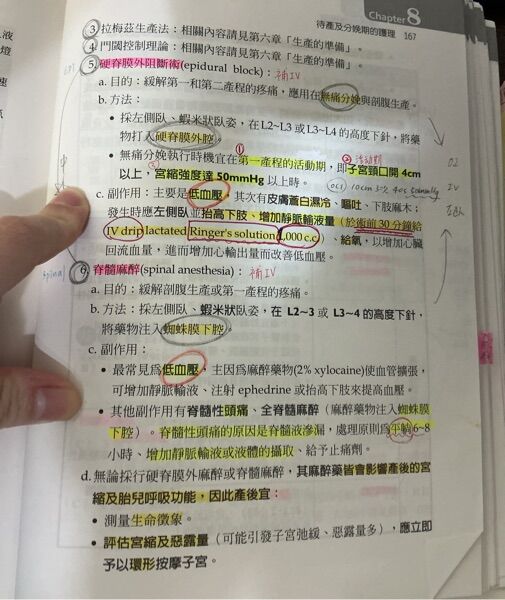 待產及分娩期的護理 167
Chapter 8
③ 拉梅茲生產法：相關內容請見第六章「生產的準備」。
④ 門閾控制理論：相關內容請見第六章「生產的準備」。
⑤ 硬脊膜外阻斷術(epidural block)：補IV
a. 目的：緩解第一和第二產程的疼痛，應用在無痛分娩與剖腹生產。
b. 方法：
• 採左側臥、蝦米狀臥姿，在 L2~L3 或 L3~L4 的高度下針，將藥
物打入硬脊膜外腔。
① ② 活動期
• 無痛分娩執行時機宜在第一產程的活動期，即子宮頸口開 4cm
以上，宮縮強度達 50mmHg 以上時。
③
c. 副作用：主要是低血壓，其次有皮膚蒼白濕冷、嘔吐、下肢麻木；
發生時應左側臥並抬高下肢、增加靜脈輸液量（於術前 30 分鐘給
IV drip lactated Ringer's solution 1,000 c.c.）、給氧，以增加心臟
回流血量，進而增加心輸出量而改善低血壓。
O2
IV
spinal
⑥ 脊髓麻醉(spinal anesthesia)：補IV
a. 目的：緩解剖腹生產或第一產程的疼痛。
b. 方法：採左側臥、蝦米狀臥姿，在 L2~3 或 L3~4 的高度下針，
將藥物注入蜘蛛膜下腔。
c. 副作用：
• 最常見為低血壓，主因為麻醉藥物(2% xylocaine)使血管擴張，
可增加靜脈輸液、注射 ephedrine 或抬高下肢來提高血壓。
• 其他副作用有脊髓性頭痛、全脊髓麻醉（麻醉藥物注入蜘蛛膜
下腔）。脊髓性頭痛的原因是脊髓液滲漏，處理原則為平躺 6~8
小時、增加靜脈輸液或液體的攝取、給予止痛劑。
d. 無論採行硬脊膜外麻醉或脊髓麻醉，其麻醉藥皆會影響產後的宮
縮及胎兒呼吸功能，因此產後宜：
• 測量生命徵象。
• 評估宮縮及惡露量（可能引發子宮弛緩、惡露量多），應立即
予以環形按摩子宮。